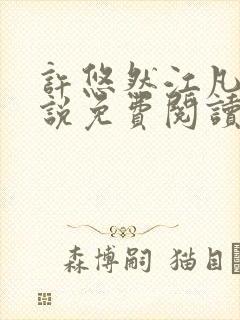 許悠然江凡
說免費閱讀
森博嗣 猫目